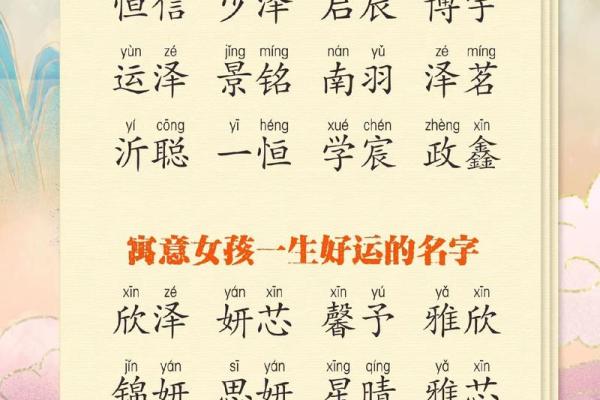 恒信 少泽 辰 博宇
yùn zé jǐng míng nán yǔ zé míng
运泽 景铭 南羽 泽茗
yí cōng yī héng xué chén zhèng xīn
沂聪 一恒 学宸 政鑫
寓意女孩一生好运的名字
xīn zé yán xīn xīn yú yǎ xīn
欣泽 妍芯 馨予 雅欣
jǐn yán sī yán xīng qíng yǎ xīn
锦妍 思妍 星晴 雅芯